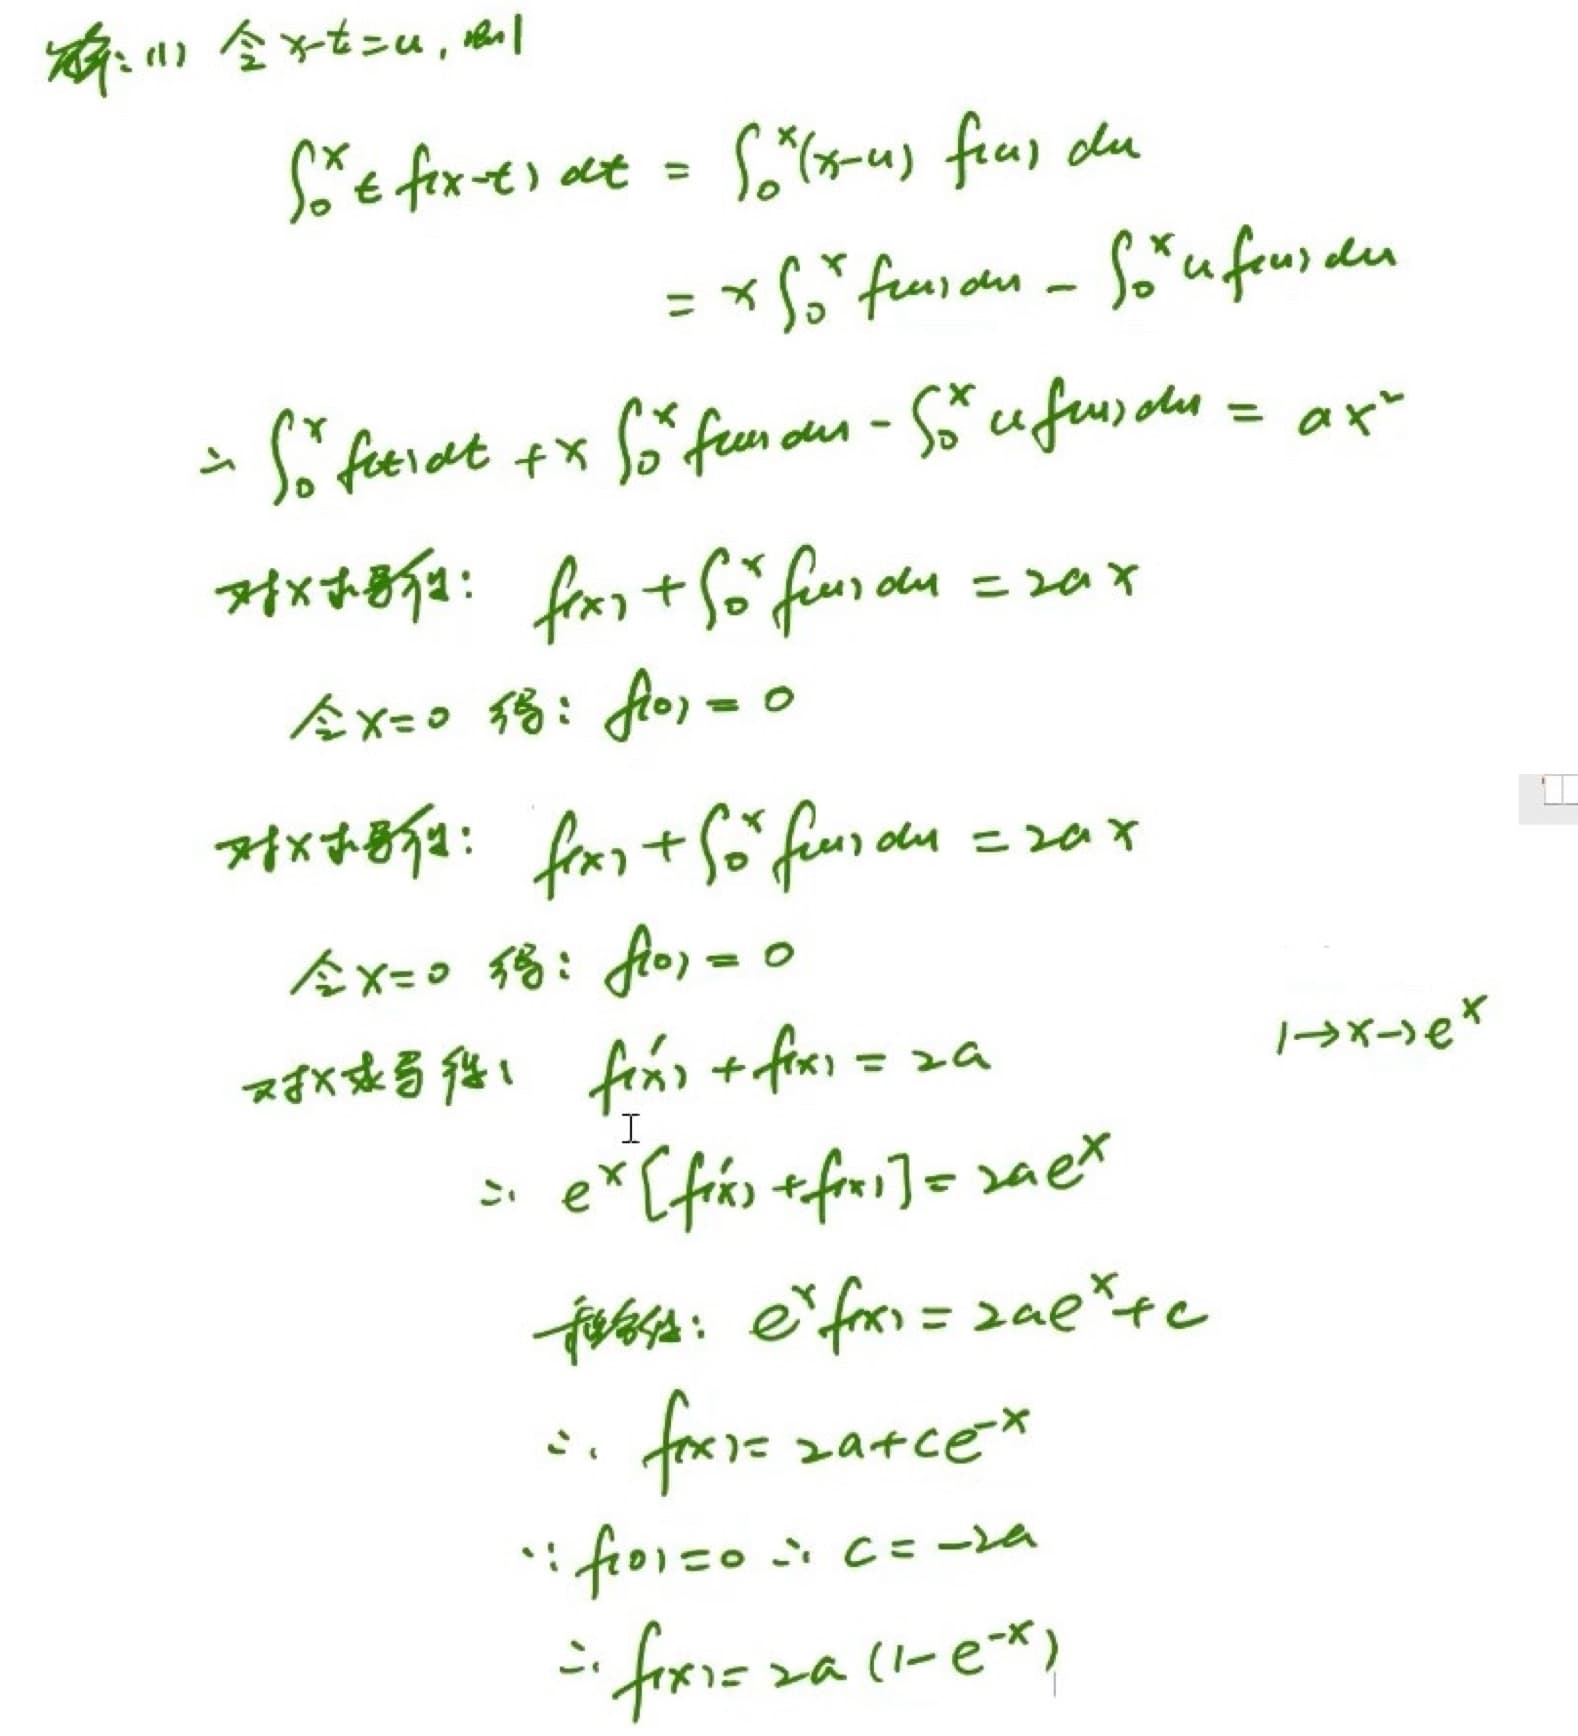 解:(1) 令x-t=u, 则
∫₀ˣ t f(x-t) dt = ∫₀ˣ (x-u) f(u) du
= x ∫₀ˣ f(u) du - ∫₀ˣ u f(u) du
∴ ∫₀ˣ f(t) dt + x ∫₀ˣ f(u) du - ∫₀ˣ u f(u) du = ax²
对x求导得: f(x) + ∫₀ˣ f(u) du = 2ax
令x=0 得: f(0) = 0
对x求导得: f(x) + ∫₀ˣ f(u) du = 2ax
令x=0 得: f(0) = 0
1→x→eˣ
对x求导得: f'(x) + f(x) = 2a
∴ eˣ[f'(x) + f(x)] = 2aeˣ
积分得: eˣf(x) = 2aeˣ + c
∴ f(x) = 2a + ce⁻ˣ
∵ f(0) = 0 ∴ c = -2a
∴ f(x) = 2a (1 - e⁻ˣ)